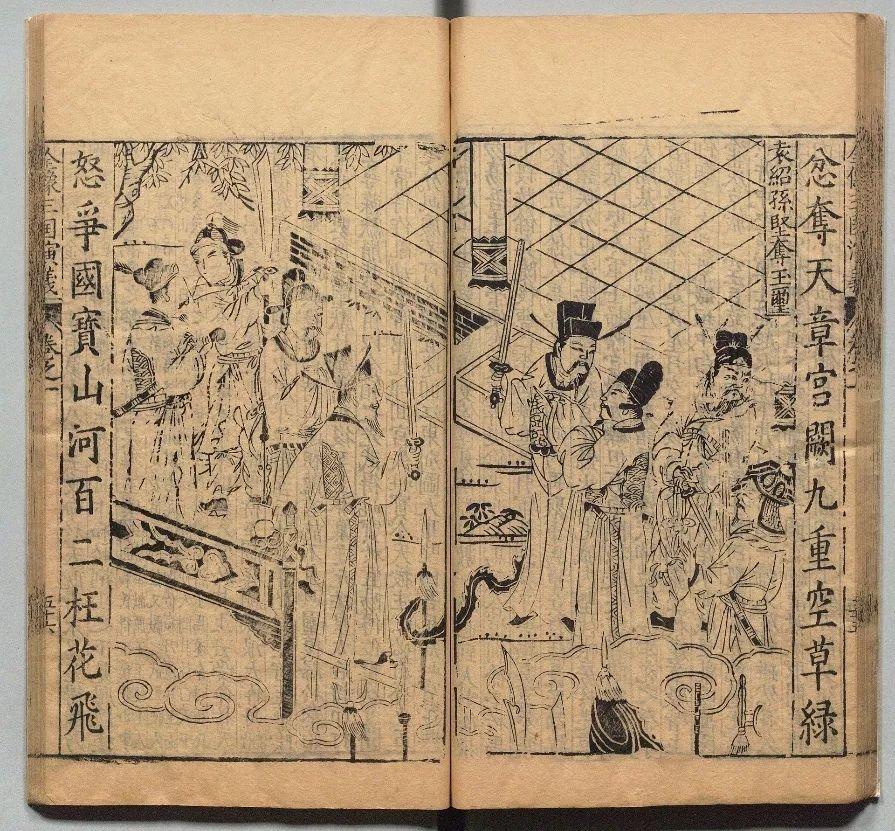 忿奪天章宮闕九重空草緑
袁紹孫堅奪玉璽
怒爭國寶山河百二枉花飛
全像三国演義
卷之一